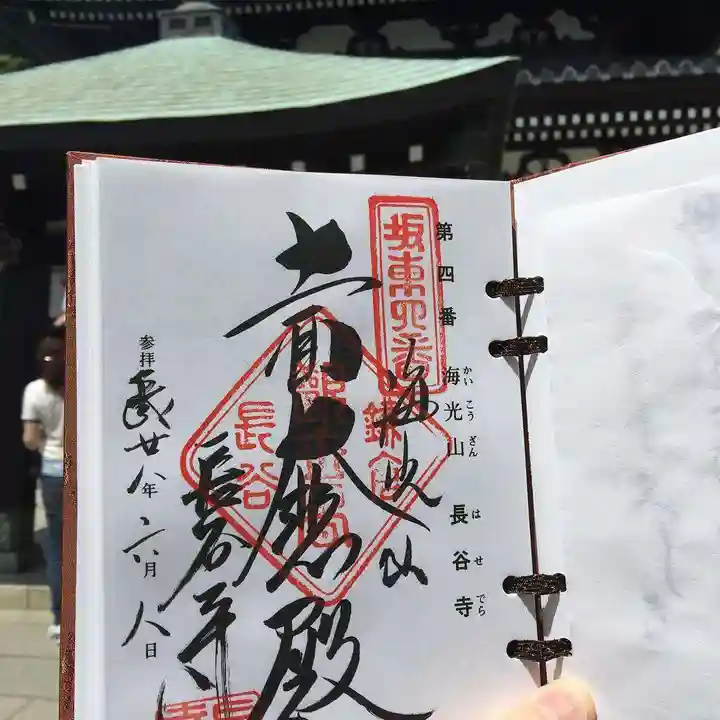 第四番
海光山 長谷寺
かいこうざん はせでら
坂東四番
海光山
十一面大悲殿
長谷寺
鎌倉
長谷
参拝 廿八年 六月 八日